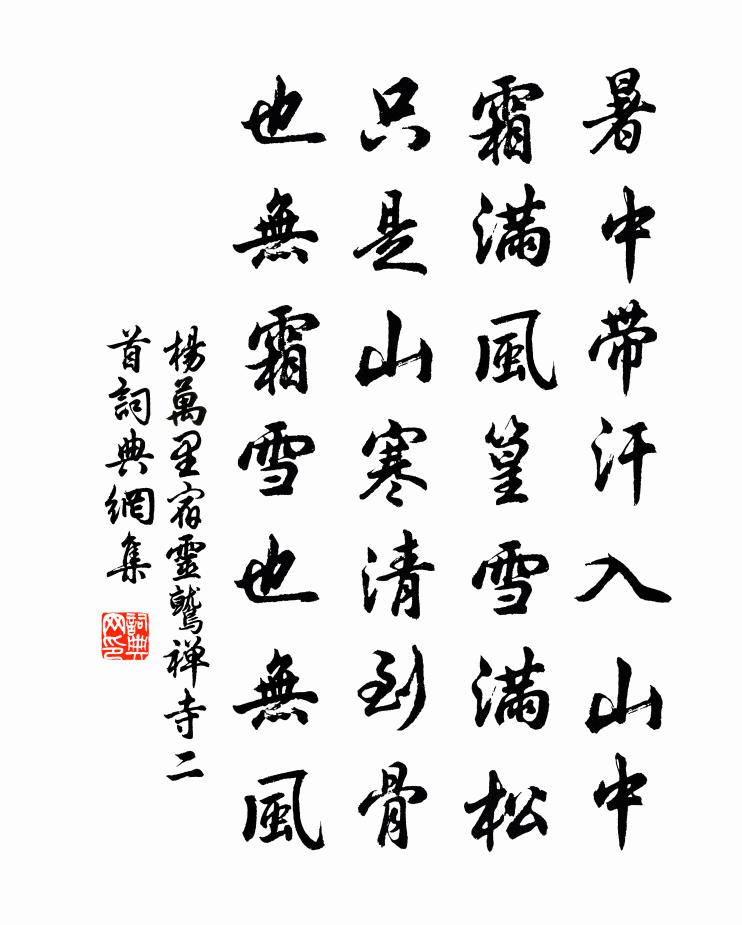 暑中帶汗入山中
霜滿風篁雪滿松
只是山寒清到骨
也無霜雪也無風
楊萬里宿靈鷲禅寺二
首詞典網集
詞典
网印